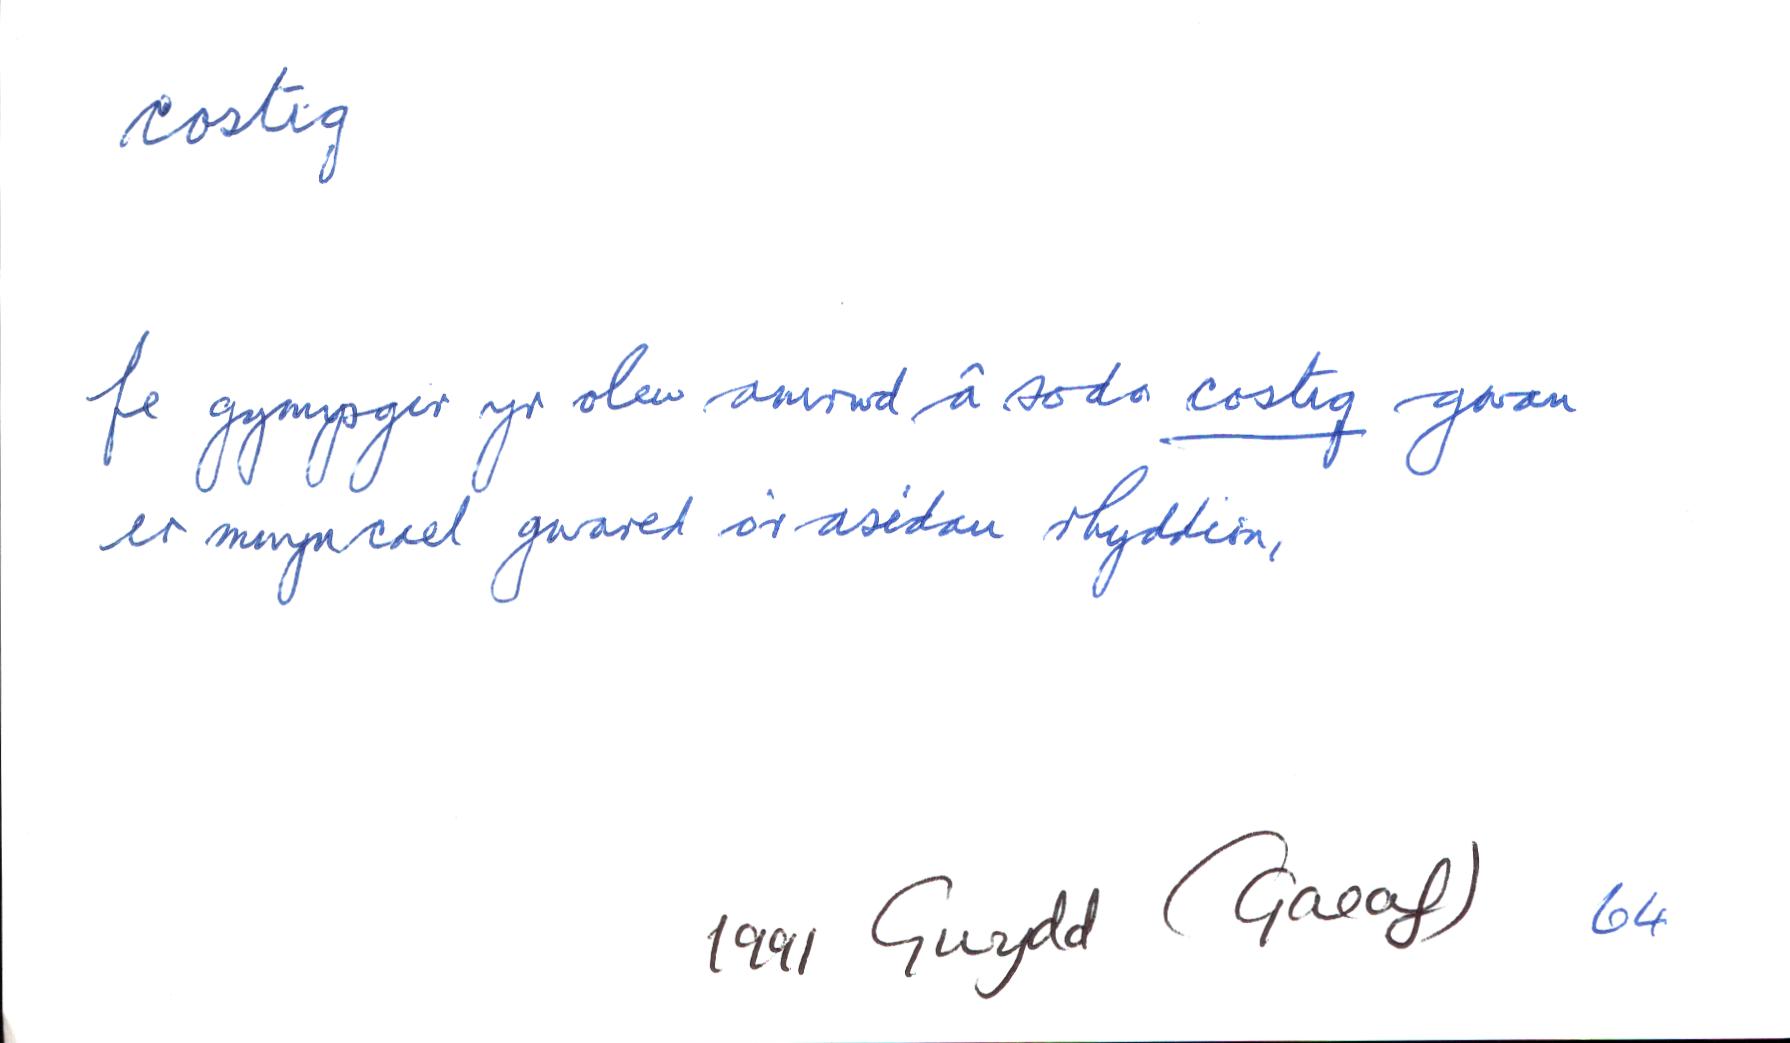 costig
fe gymysgir yr olew amrwd â soda costig gwan
er mwyn cael gwared o'r asidau rhyddion,
1991 Gwydd (Gaeaf) 64